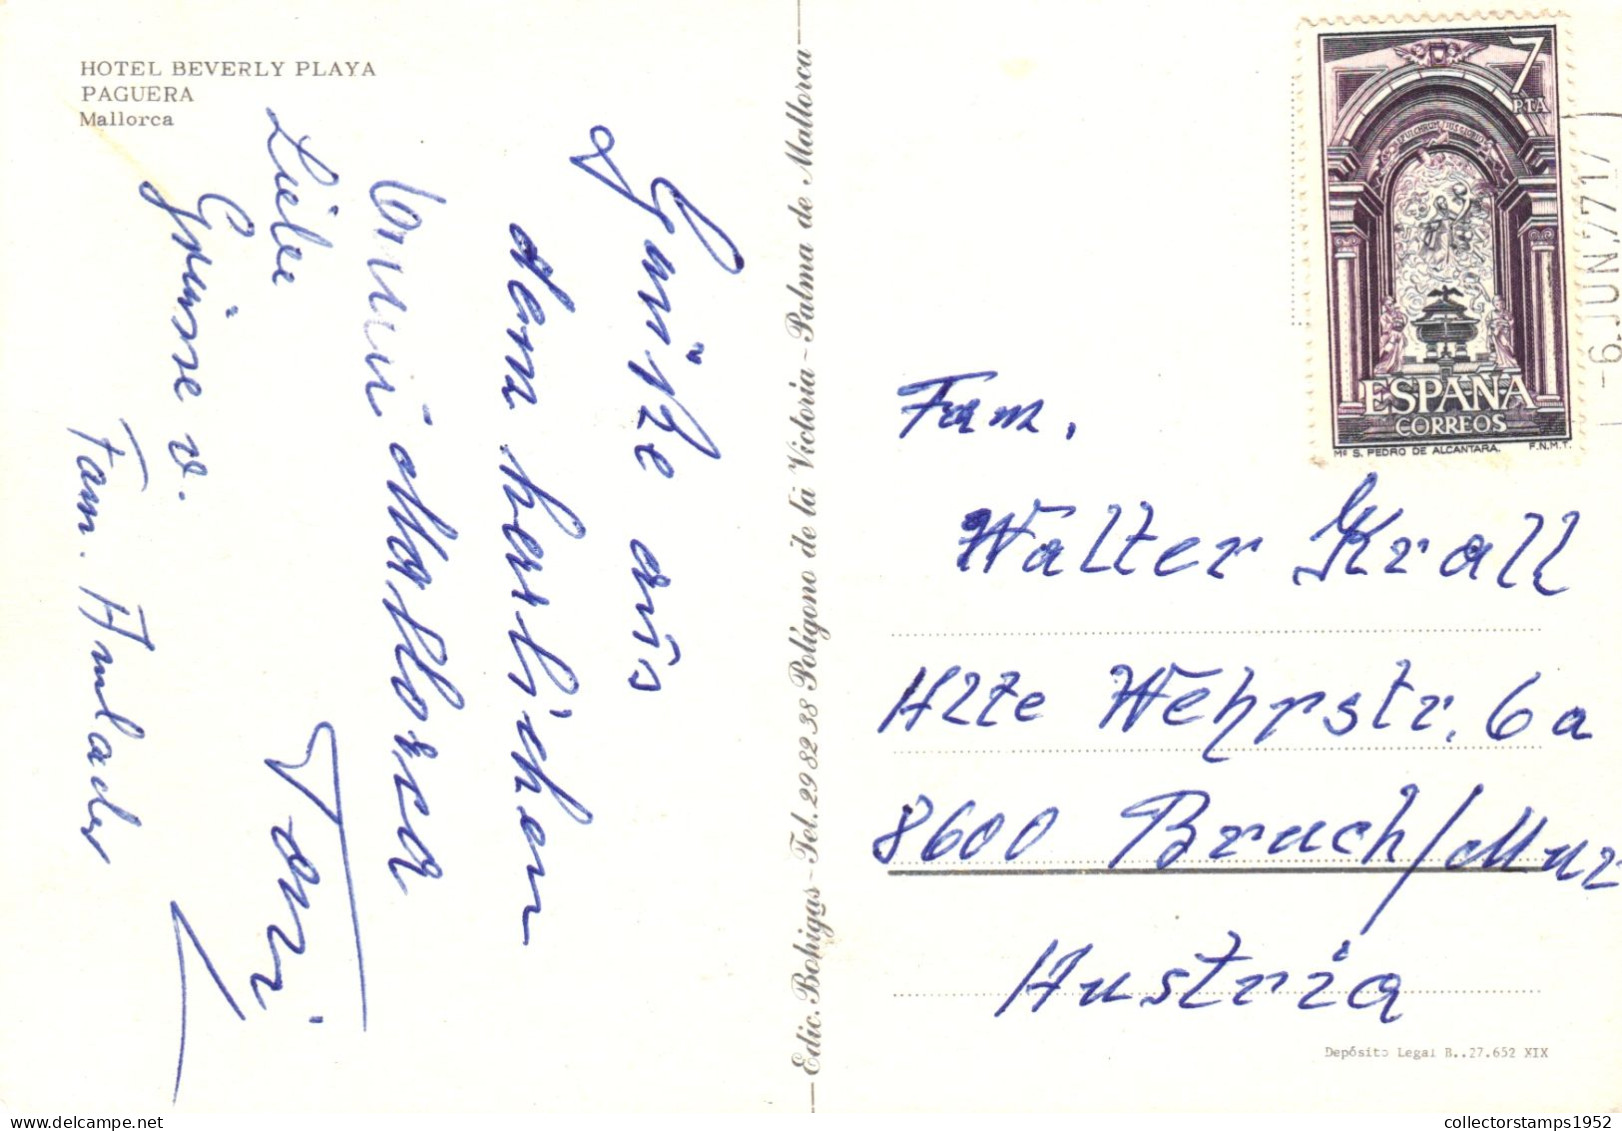 HOTEL BEVERLY PLAYA
PAGUERA
Mallorca
Grüße aus
dem herrlichen
Mallorca
Toni
Liebe
Grüsse v.
Fam.
Edic. Bohigas - Tel. 29 82 38 Polígono de la Victoria - Palma de Mallorca
7
PTA
ESPAÑA
CORREOS
Mº S. PEDRO DE ALCANTARA.
F.N.M.T.
-9.JUN 77 17
Fam.
Walter Krall
Alte Wehrstr. 6a
8600 Bruck/Mur
Austria
Depósito Legal B..27.652 XIX
collectorstamps1952